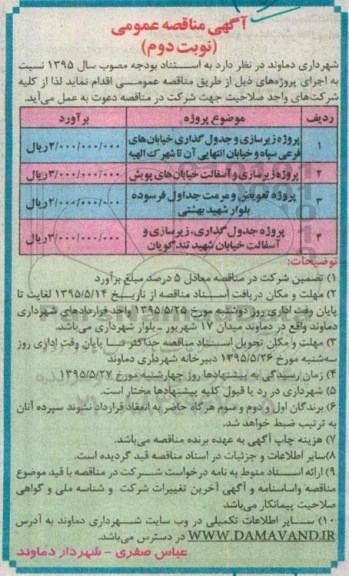 آگهی مناقصه عمومی
(نوبت دوم)
شهرداری دماوند در نظر دارد به استناد بودجه مصوب سال ۱۳۹۵ نسبت
به اجرای پروژه‌های ذیل از طریق مناقصه عمومی اقدام نماید لذا از کلیه
شرکت‌های واجد صلاحیت جهت شرکت در مناقصه دعوت به عمل می‌آید.
ردیف موضوع پروژه برآورد
۱ پروژه زیرسازی و جدول گذاری خیابان‌های فرعی سپاه و خیابان انتهایی آن تا شهرک الهیه ۲/۰۰۰/۰۰۰/۰۰۰ریال
۲ پروژه زیرسازی و آسفالت خیابان‌های پویش ۳/۰۰۰/۰۰۰/۰۰۰ریال
۳ پروژه تعویض و مرمت جداول فرسوده بلوار شهید بهشتی ۲/۰۰۰/۰۰۰/۰۰۰ریال
۴ پروژه جدول گذاری، زیرسازی و آسفالت خیابان شهید تندگویان ۳/۰۰۰/۰۰۰/۰۰۰ریال
توضیحات:
۱) تضمین شرکت در مناقصه معادل ۵ درصد مبلغ برآورد
۲) مهلت و مکان دریافت اسناد مناقصه از تاریخ ۱۳۹۵/۵/۱۴ لغایت تا
پایان وقت اداری روز دوشنبه مورخ ۱۳۹۵/۵/۲۵ واحد قراردادهای شهرداری
دماوند واقع در دماوند میدان ۱۷ شهریور - بلوار شهرداری می‌باشد.
۳) مهلت و مکان تحویل اسناد مناقصه حداکثر تا پایان وقت اداری روز
سه‌شنبه مورخ ۱۳۹۵/۵/۲۶ دبیرخانه شهرداری دماوند
۴) زمان رسیدگی به پیشنهادها روز چهارشنبه مورخ ۱۳۹۵/۵/۲۷
۵) شهرداری در رد یا قبول کلیه پیشنهادها مختار است.
۶) برندگان اول و دوم و سوم هرگاه حاضر به انعقاد قرارداد نشوند سپرده آنان
به ترتیب ضبط خواهد شد.
۷) هزینه چاپ آگهی به عهده برنده مناقصه می‌باشد.
۸)سایر اطلاعات و جزئیات در اسناد مناقصه قید گردیده است.
۹) ارائه اسناد منوط به نامه درخواست شرکت در مناقصه با قید موضوع
مناقصه واساسنامه و آگهی آخرین تغییرات شرکت و شناسه ملی و گواهی
صلاحیت پیمانکار می‌باشد
۱۰) سایر اطلاعات تکمیلی در وب سایت شهرداری دماوند به آدرس
WWW.DAMAVAND.IR در دسترس می‌باشد.
عباس صفری - شهردار دماوند